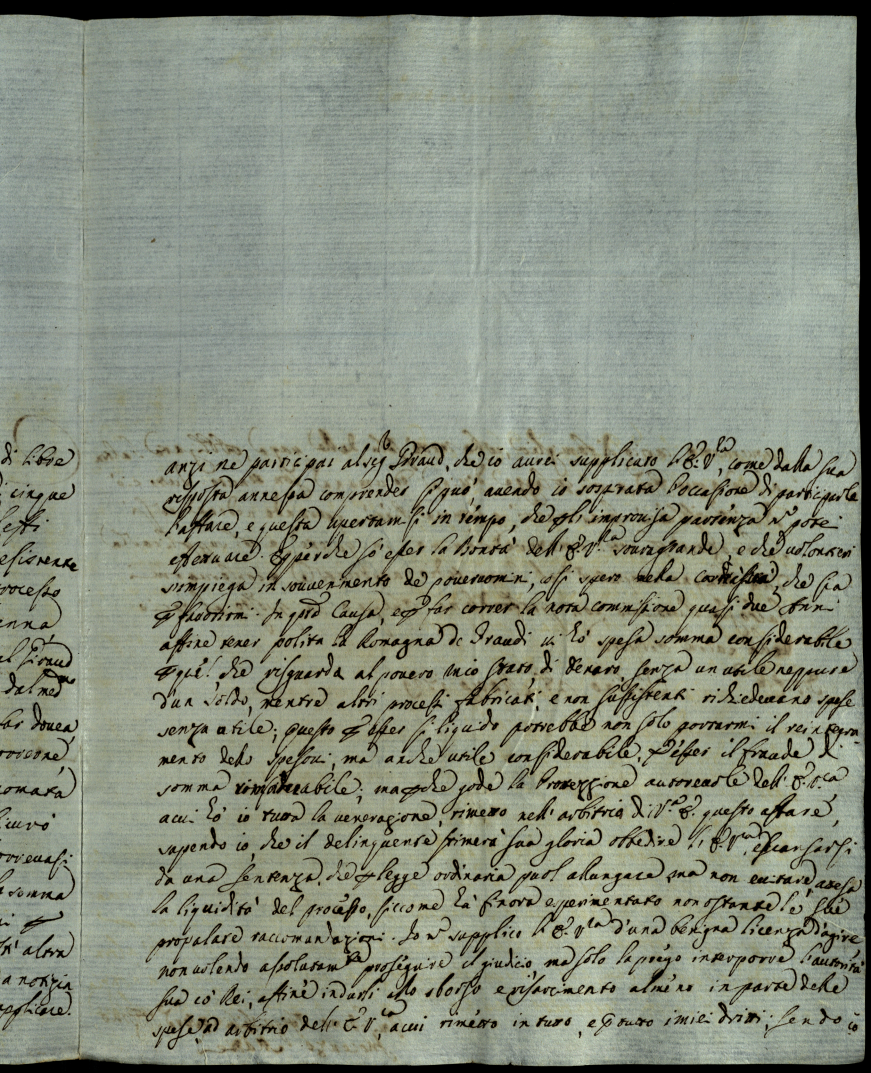 di Libre
cinque
lesti
esistente
rocesso
enna
al Giraud
dal med.mo
far dover
rovarne
nomata
sicuro
rovevasi
la somma
altra
a notizia
applicare.
anzi ne participai al sig.r Giraud, che io avrei supplicato l'E. V.ra, come dalla sua
risposta annessa comprender si può, avendo io sospirata l'occasione di participarle
l'affare, e questa apertamsi in tempo, che gli improvisa partenza n.n potei
effettuare. E perche sò esser la Bontà dell'E. V.ra sovragrande, e che volontieri
s'impiega in sovvenimento de poveruomini, così spero nella che sia
p favorirmi. In q.sta Causa, e p far correr la nota commissione quasi due Anni
affine tener polita la Romagna de Fraudi vi hò speso somma considerabile
p quel che risguarda al povero mio stato, di denaro, senza un utile neppure
d'un soldo, mentre altri processi fabricati, e non sussistenti richiedevano spese
senza utile; questo p esser si liquido potrebbe non solo portarmi il reintegra-
mento dello spesovi, ma anche utile considerabile, p esser il fraude di
somma rimarcabile; ma p che gode la Protezzione autorevole dell'E. V.ra
a cui hò io tutta la venerazione, rimetto nell'arbitrio di V.ra E. questo affare,
sapendo io che il delinquente stimerà sua gloria obbedire l'E. V.ra, e scansarsi
da una sentenza, che p legge ordinaria puol alungare ma non evitare, attesa
la liquidità del processo, siccome hà finora esperimentato non ostante le sue
propalate raccomandazioni. Io n.n supplico l'E. V.ra d'una benigna licenza d'agire
non volendo assolutam.te proseguire il giudicio, ma solo la prego interporre l'autorità
sua co' Rei, affine indurli allo sborso e risarcimento almeno in parte delle
spese, ad arbitrio dell'E. V.ra, a cui rimetto in tutto, e p tutto i miei dritti, sendo io